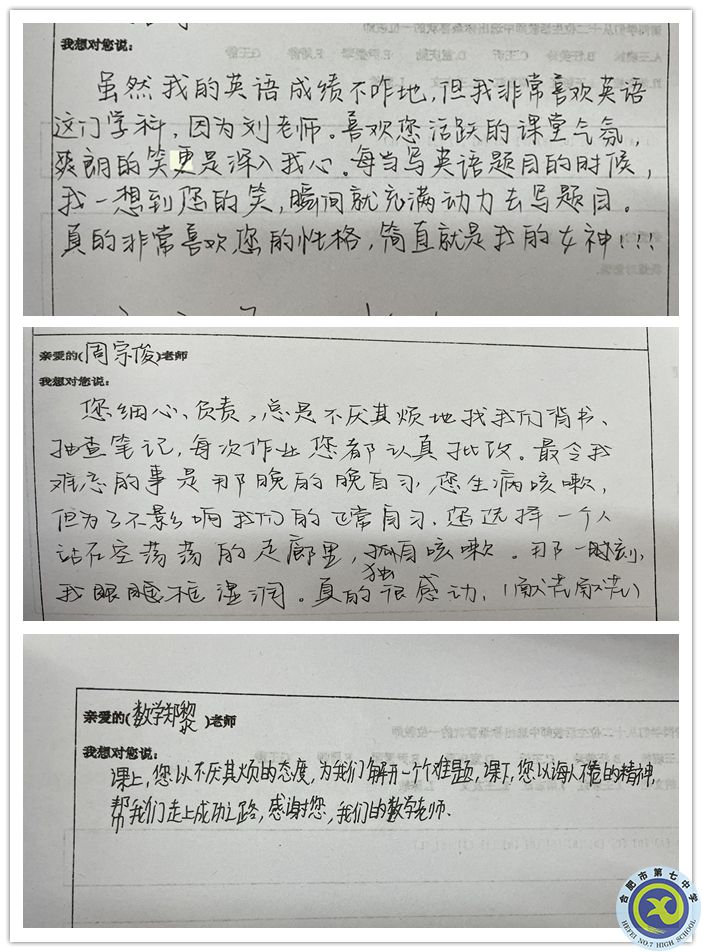 我想对您说：
虽然我的英语成绩不咋地，但我非常喜欢英语
这门学科，因为刘老师。喜欢您活跃的课堂气氛，
爽朗的笑更是深入我心。每当写英语题目的时候，
我一想到您的笑，瞬间就充满动力去写题目。
真的非常喜欢您的性格，简直就是我的女神！！！
亲爱的(周宗俊)老师
我想对您说：
您细心、负责，总是不厌其烦地找我们背书、
抽查笔记，每次作业您都认真批改。最令我
难忘的事是那晚的晚自习，您生病咳嗽，
但为了不影响我们的正常自习，您选择一个人
站在空荡荡的走廊里，孤独自咳嗽。那一时刻，
我眼眶湿润。真的很感动，（献花献花）
亲爱的(数学郑黎)老师
我想对您说：
课上，您以不厌其烦的态度，为我们解开一个个难题，课下，您以诲人不倦的精神，
帮我们走上成功之路，感谢您，我们的数学老师.
合肥市第七中学
HEFEI NO.7 HIGH SCHOOL